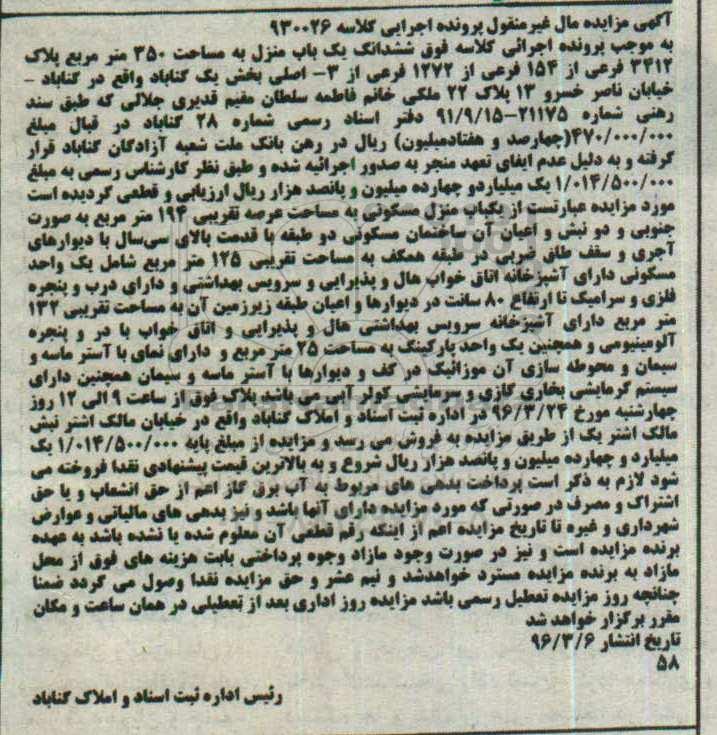 آگهی مزایده مال غیرمنقول پرونده اجرایی کلاسه ۹۳۰۰۲۶
به موجب پرونده اجرائی کلاسه فوق ششدانگ یک باب منزل به مساحت ۳۵۰ متر مربع پلاک
۳۴۱۲ فرعی از ۱۵۴ فرعی از ۱۲۷۲ فرعی از ۳- اصلی بخش یک گناباد واقع در گناباد -
خیابان ناصر خسرو ۱۳ پلاک ۲۲ ملکی خانم فاطمه سلطان مقیم قدیری جلالی که طبق سند
رهنی شماره ۲۱۱۷۵-۹۱/۹/۱۵ دفتر اسناد رسمی شماره ۲۸ گناباد در قبال مبلغ
۴۷۰/۰۰۰/۰۰۰(چهارصد و هفتادمیلیون) ریال در رهن بانک ملت شعبه آزادگان گناباد قرار
گرفته و به دلیل عدم ایفای تعهد منجر به صدور اجرائیه شده و طبق نظر کارشناس رسمی به مبلغ
۱/۰۱۴/۵۰۰/۰۰۰ یک میلیاردو چهارده میلیون و پانصد هزار ریال ارزیابی و قطعی گردیده است
مورد مزایده عبارتست از یکباب منزل مسکونی به مساحت عرصه تقریبی ۱۹۴ متر مربع به صورت
جنوبی و دو نبش و اعیان آن ساختمان مسکونی دو طبقه با قدمت بالای سی‌سال با دیوارهای
آجری و سقف طاق ضربی در طبقه همکف به مساحت تقریبی ۱۲۵ متر مربع شامل یک واحد
مسکونی دارای آشپزخانه اتاق خواب هال و پذیرایی و سرویس بهداشتی و دارای درب و پنجره
فلزی و سرامیک تا ارتفاع ۸۰ سانت در دیوارها و اعیان طبقه زیرزمین آن به مساحت تقریبی ۱۳۲
متر مربع دارای آشپزخانه سرویس بهداشتی هال و پذیرایی و اتاق خواب با در و پنجره
آلومینیومی و همچنین یک واحد پارکینگ به مساحت ۲۵ متر مربع و دارای نمای با آستر ماسه و
سیمان و محوطه سازی آن موزائیک در کف و دیوارها با آستر ماسه و سیمان همچنین دارای
سیستم گرمایشی بخاری گازی و سرمایشی کولر آبی می باشد پلاک فوق از ساعت ۹ الی ۱۲ روز
چهارشنبه مورخ ۹۶/۳/۲۴ در اداره ثبت اسناد و املاک گناباد واقع در خیابان مالک اشتر نبش
مالک اشتر یک از طریق مزایده به فروش می رسد و مزایده از مبلغ پایه ۱/۰۱۴/۵۰۰/۰۰۰ یک
میلیارد و چهارده میلیون و پانصد هزار ریال شروع و به بالاترین قیمت پیشنهادی نقدا فروخته می
شود لازم به ذکر است پرداخت بدهی های مربوط به آب برق گاز اعم از حق انشعاب و یا حق
اشتراک و مصرف در صورتی که مورد مزایده دارای آنها باشد و نیز بدهی های مالیاتی و عوارض
شهرداری و غیره تا تاریخ مزایده اعم از اینکه رقم قطعی آن معلوم شده یا نشده باشد به عهده
برنده مزایده است و نیز در صورت وجود مازاد وجوه پرداختی بابت هزینه های فوق از محل
مازاد به برنده مزایده مسترد خواهدشد و نیم عشر و حق مزایده نقدا وصول می گردد ضمنا
چنانچه روز مزایده تعطیل رسمی باشد مزایده روز اداری بعد از تعطیلی در همان ساعت و مکان
مقرر برگزار خواهد شد
تاریخ انتشار ۹۶/۳/۶
۵۸
رئیس اداره ثبت اسناد و املاک گناباد